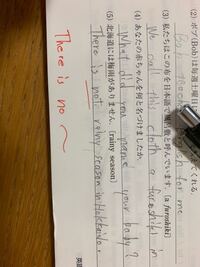 (2) ボブ(Bob)は毎週土曜
てくれる.
for me.
(3) 私たちはこの布を日本語で風呂敷と呼んでいます.(a furoshiki)
We call this cloth a furoshiki in
(4) あなたの赤ちゃんを何と名づけましたか.
What did you name your baby?
(5) 北海道には梅雨がありません.(rainy season)
There is not rainy season in Hokkaido.
There is no 〜